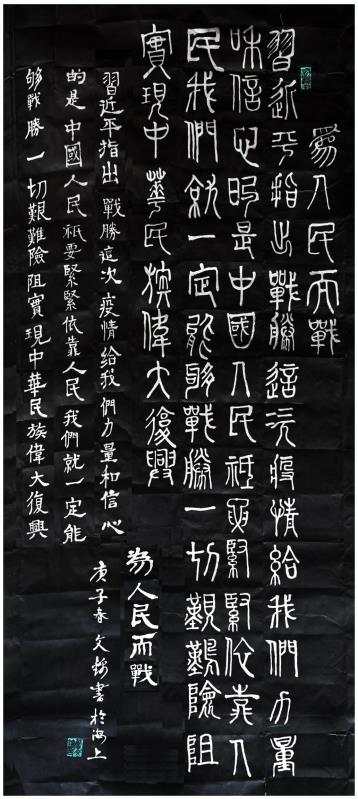 為人民而戰
習近平指出戰勝這次疫情給我們力量
和信心的是中國人民祇要緊緊依靠人
民我們就一定能够戰勝一切艱難險阻
實現中華民族偉大復興
為人民而戰
習近平指出戰勝這次疫情給我們力量和信心
的是中國人民祇要緊緊依靠人民我們就一定能
够戰勝一切艱難險阻實現中華民族偉大復興
庚子春文書於海上